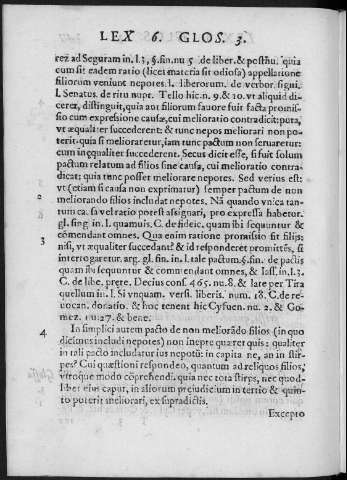 LEX 6. GLOS. 3.
rez ad Seguram in. l. 3, §. fin. nu 5 de liber. & posthu. quia
cum sit eadem ratio (licet materia sit odiosa) appellatione
filiorum veniunt nepotes. l. liberorum. de verbor. signi.
l. Senatus. de ritu nupt. Tello hic. n. 9. & 10. vt aliquid di-
ceret, distinguit, quia aut filiorum fauore fuit facta promis-
sio cum expressione causæ, cui melioratio contradicit: puta,
vt æqualiter succederent: & tunc nepos meliorari non po-
terit: quia si melioraretur, iam tunc pactum non seruaretur:
cum inęqualiter succederent. Secus dicit esse, si fuit solum
pactum relatum ad filios sine causa, cui melioratio contra-
dicat; quia tunc posset meliorare nepotes. Sed verius est:
vt (etiam si causa non exprimatur) semper pactum de non
2
meliorando filios includat nepotes. Nã quando vnica tan-
tum ca. sa vel ratio potest assignari, pro expressa habetur.
gl. sing. in. l. quamuis. C. de fideic. quam ibi sequuntur &
cōmendant omnes. Qua enim ratione promissio fit filijs;
3
nisi, vt æqualiter succedant? & id responderet promittẽs, si
interrogaretur. arg. gl. sin. in. l. tale pactum. §. fin. de pactis
quam ibi sequuntur & commendant omnes, & Iass. in. l. 3.
C. de libe. prete. Decius cons. 465. nu. 8. & late per Tira
quellum in. l. si vnquam. versi. liberis. num. 18. C. de re-
uocan. donatio. & hoc tenent hic Cyfuen. nu. 2. & Go-
mez. nu. 27. & bene.
4
In simplici autem pacto de non meliorãdo filios (in quo
diximus includi nepotes) non inepte quæret quis: qualiter
in tali pacto includatur ius nepotũ: in capita ne, an in stir-
pes? Cui quæstioni respondeo, quantum ad reliquos filios,
vtroque modo cōprehendi. quia nec tota stirps, nec quod-
liber eius caput, in aliorum preiudicium in tertio & quin-
to poterit meliorari, ex supradictis.
Excepto